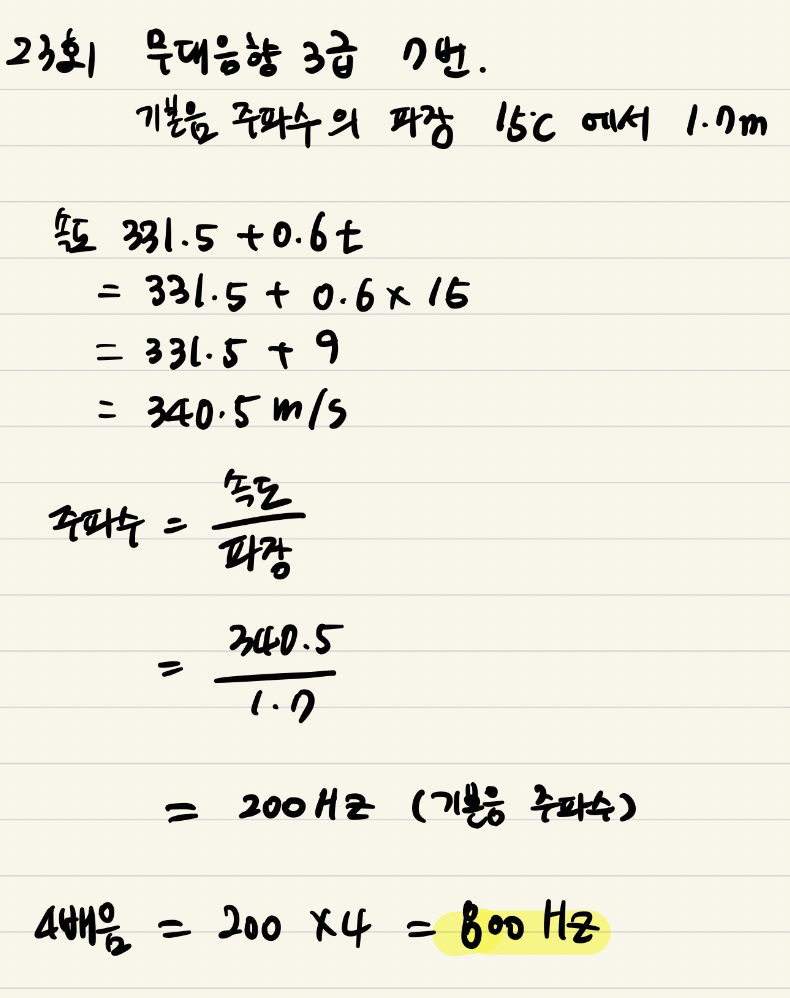 23회 무대음향 3급 7번.
기본음 주파수의 파장 15℃ 에서 1.7m
속도 331.5 + 0.6t
= 331.5 + 0.6 × 15
= 331.5 + 9
= 340.5 m/s
주파수 = 속도 / 파장
= 340.5 / 1.7
= 200 Hz (기본음 주파수)
4배음 = 200 × 4 = 800 Hz